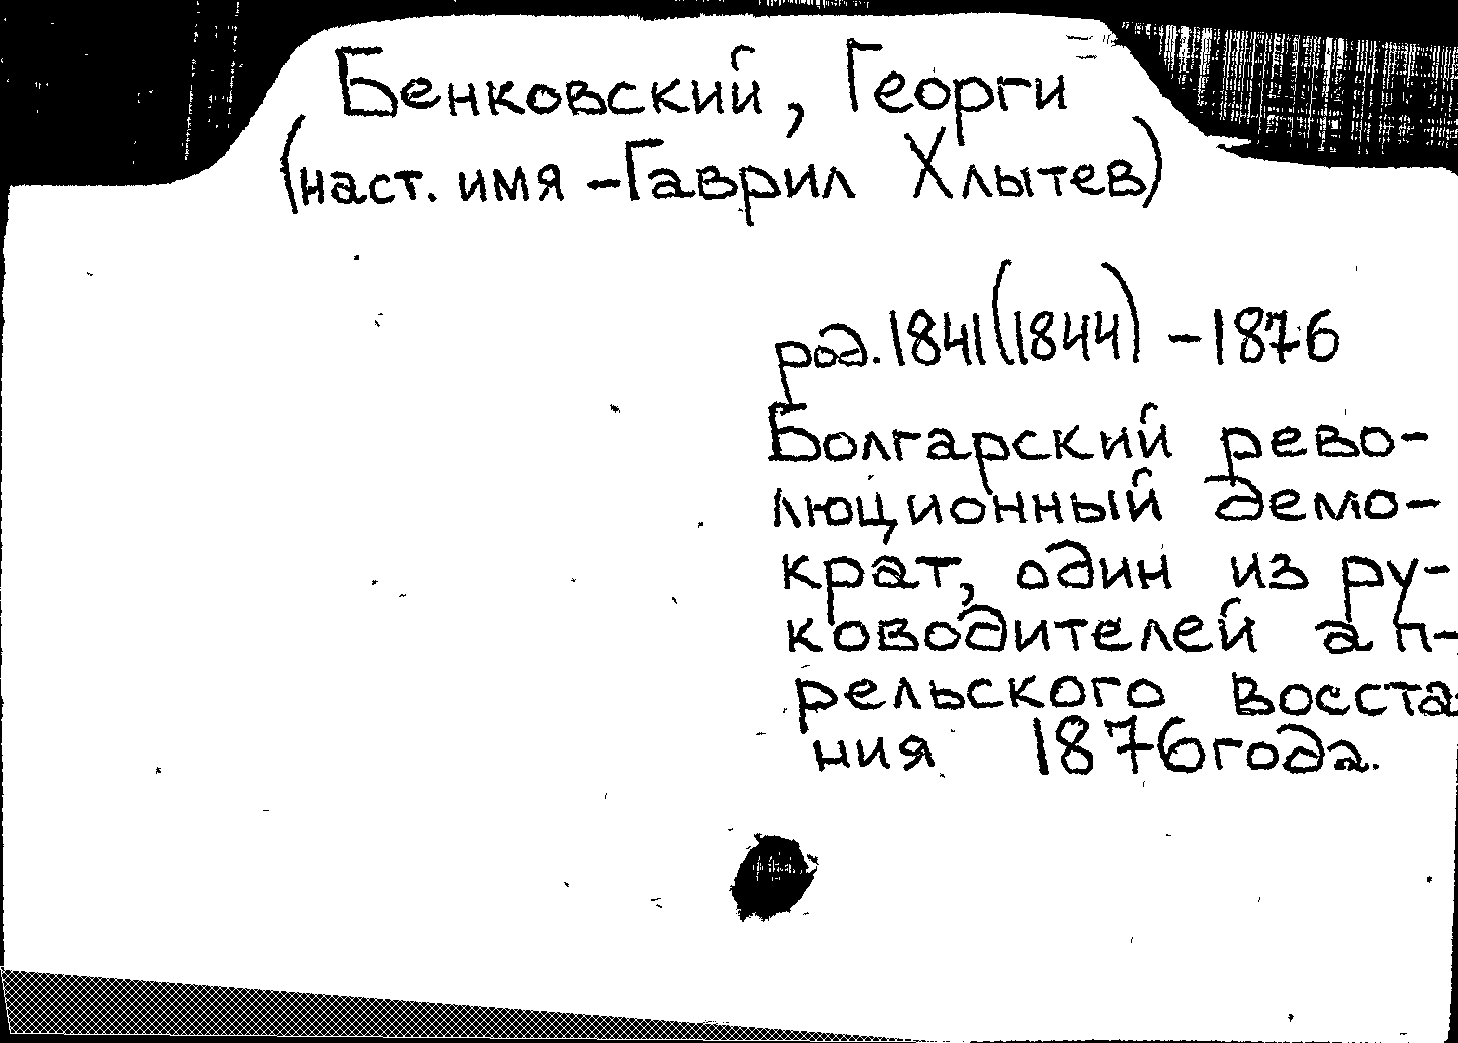 Бенковский, Георги
(наст. имя - Гаврил Хлытев)
род. 1841(1844) - 1876
Болгарский рево-
люционный демо-
крат, один из ру-
ководителей ап-
рельского восста
ния 1876 года.